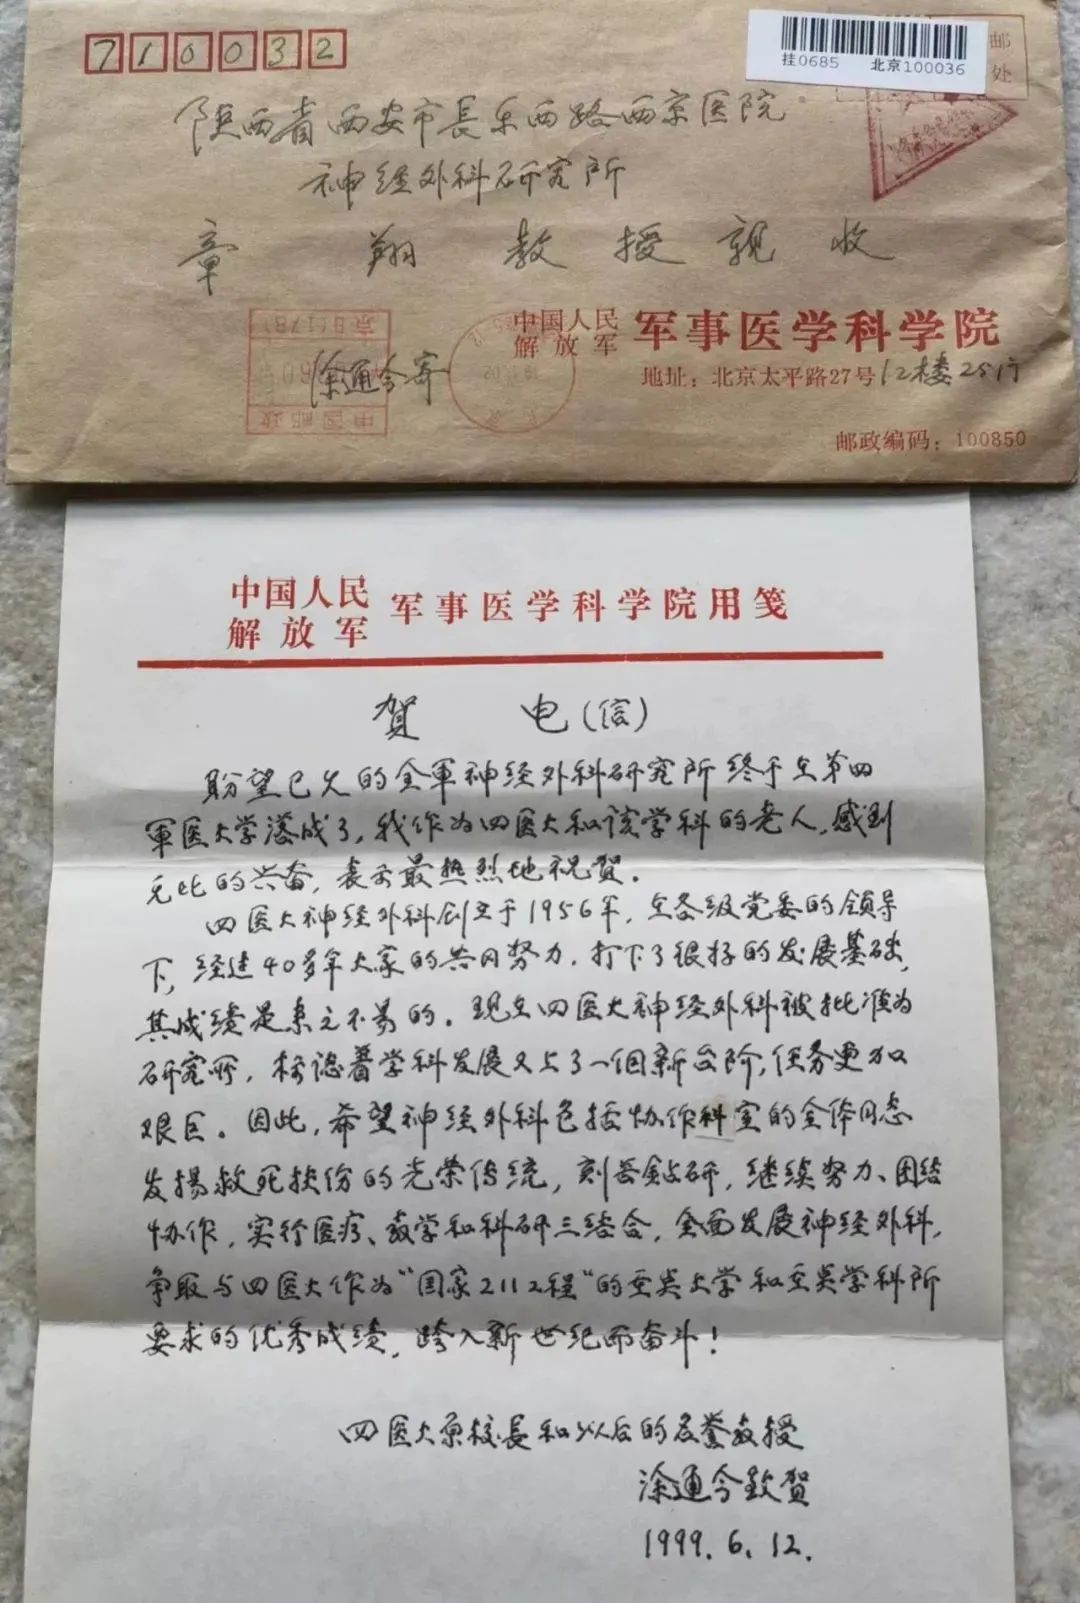 710032
挂0685 北京100036
邮
处
陕西省西安市長乐西路西京医院
神经外科研究所
章翔教授親收
中国人民
解放军
军事医学科学院
涂通今寄
地址：北京太平路27号12楼25门
中国邮政
邮政编码：100850
中国人民
解放军
军事医学科学院用笺
贺电(信)
盼望已久的全軍神经外科研究所终于在第四
軍医大学落成了，我作为四医大和该学科的老人，感到
无比的兴奋，表示最热烈地祝贺。
四医大神经外科创立于1956年，在各级党委的领导
下，经过40多年大家的共同努力，打下了很好的发展基础，
其成绩是来之不易的。现在四医大神经外科被批准为
研究所，标志着学科发展又上了一個新台阶，任务更加
艰巨。因此，希望神经外科包括协作科室的全体同志
发揚救死扶伤的光荣传统，刻苦鉆研，继续努力、团结
协作，实行医疗、教学和科研三结合，全面发展神经外科，
争取与四医大作为"国家211工程"的重点大学和重点学科所
要求的优秀成绩，跨入新世纪而奋斗！
四医大原校長和以后的名誉教授
涂通今致贺
1999.6.12.